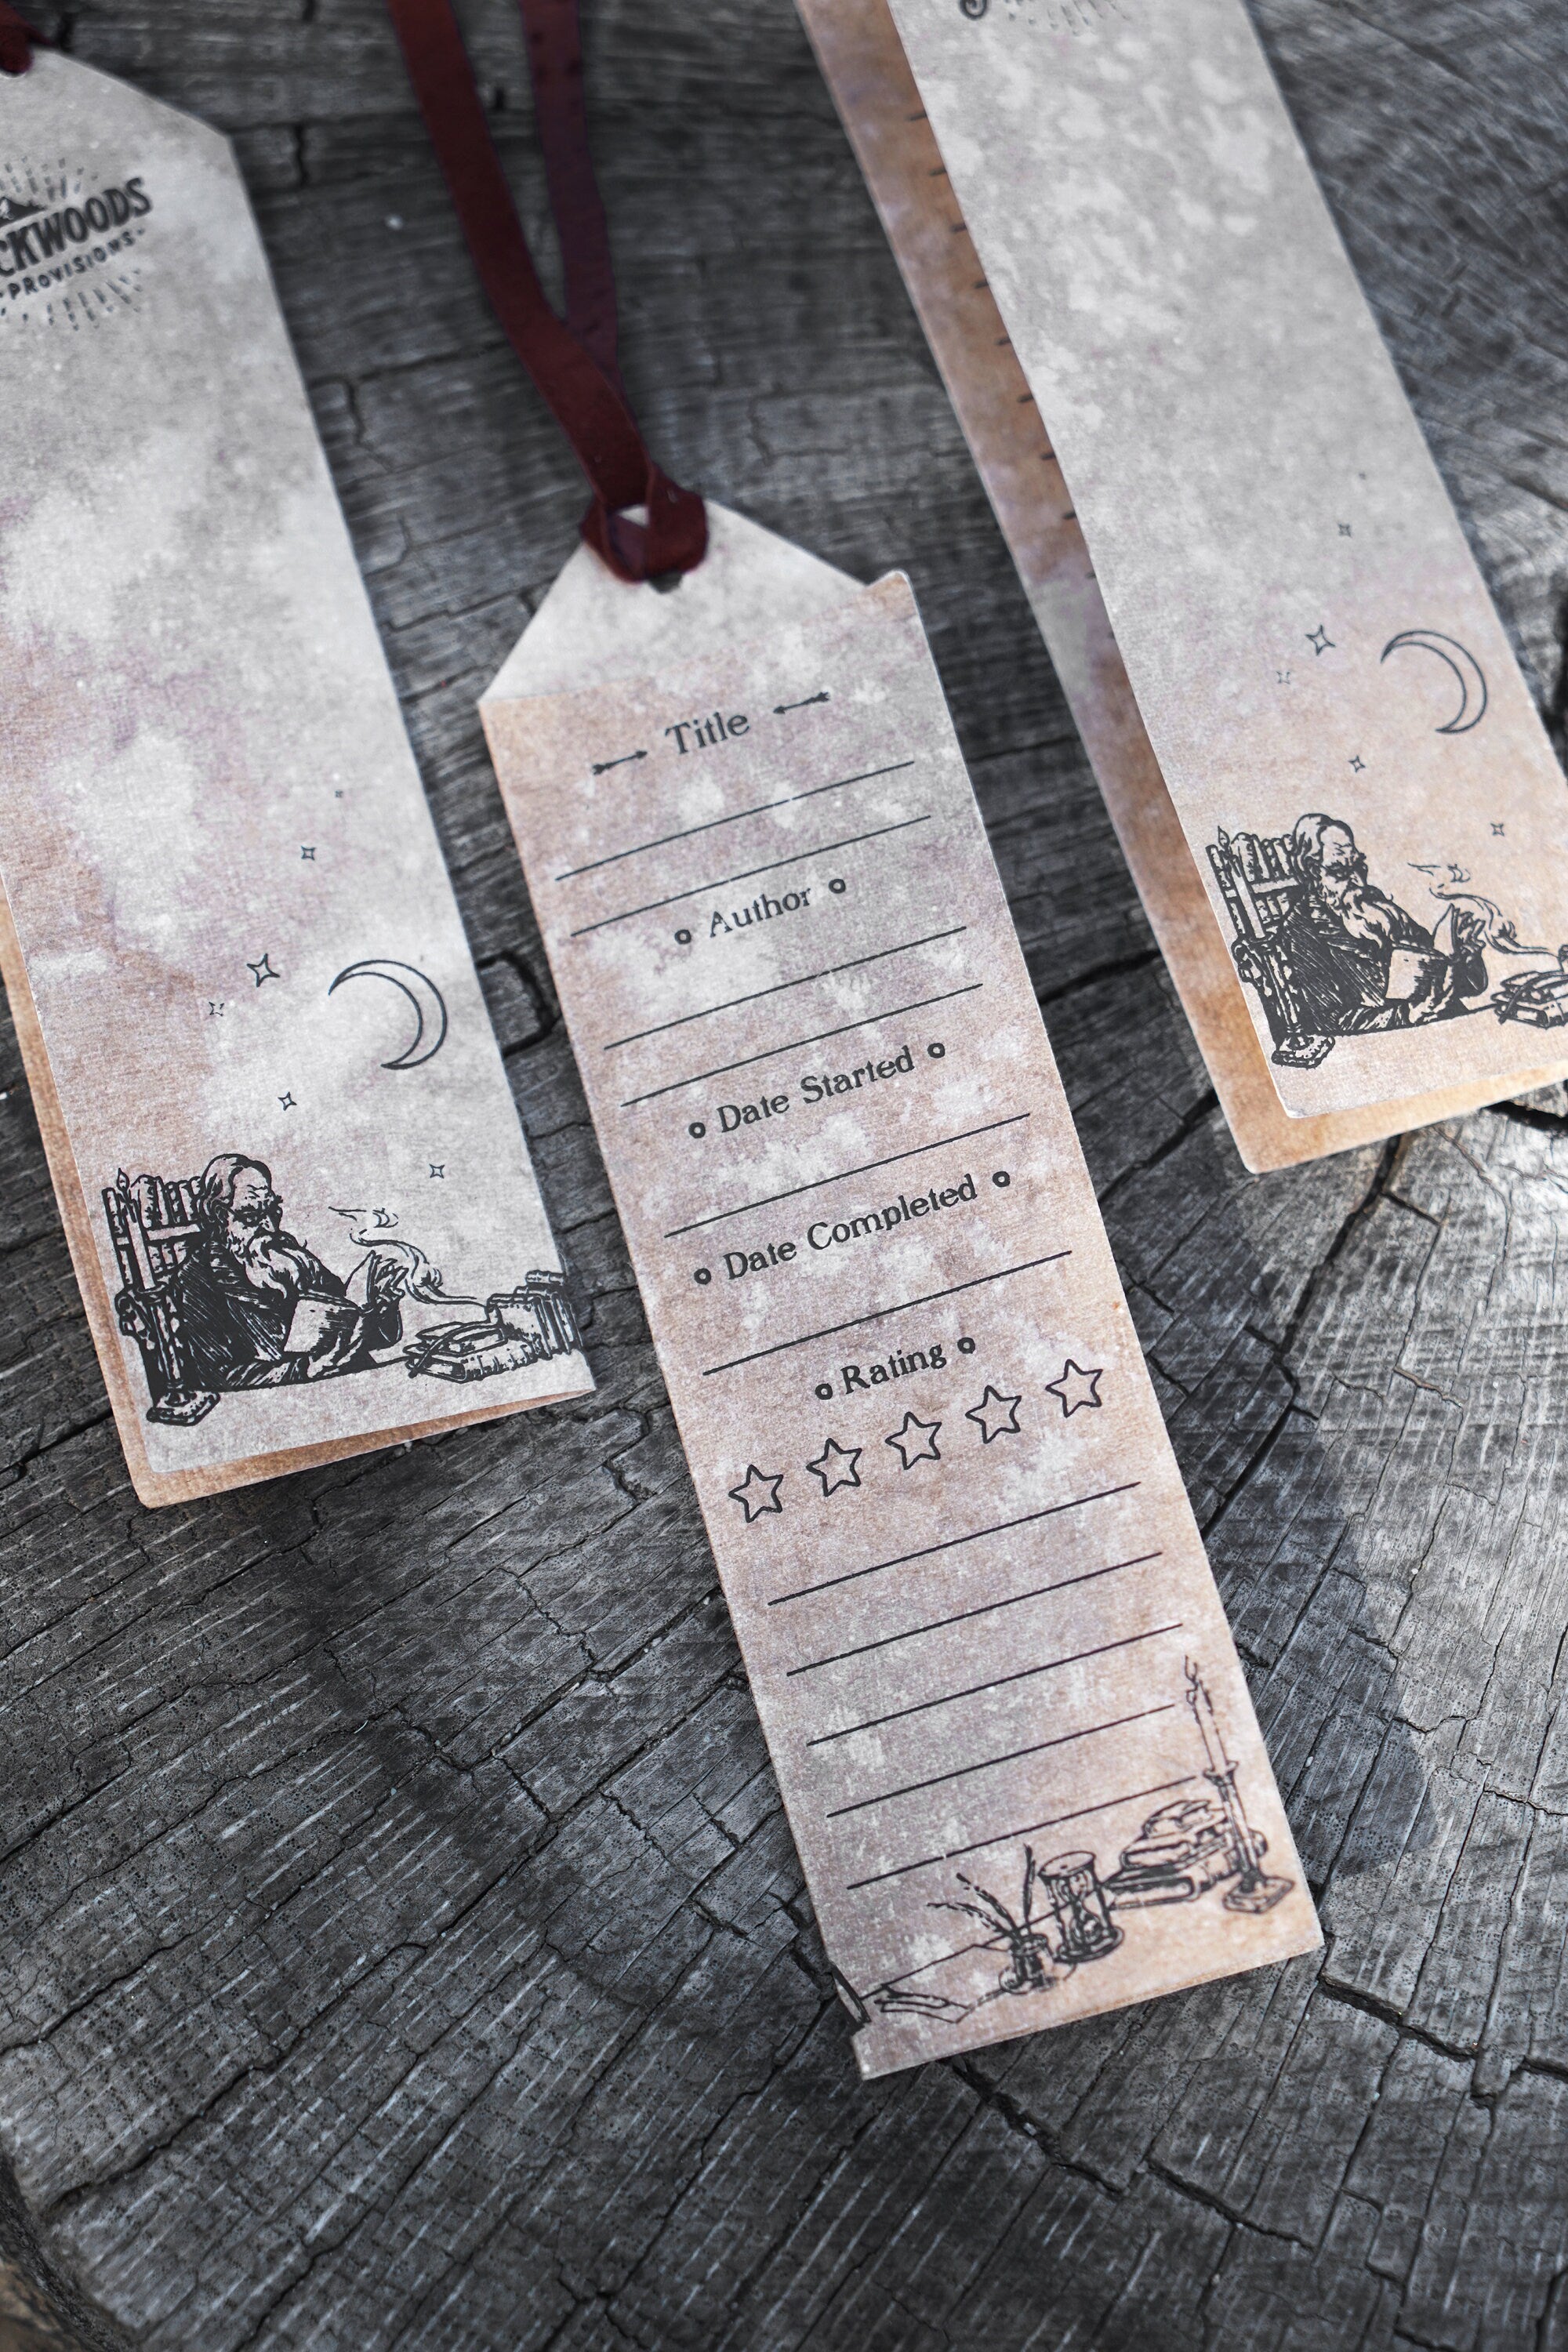 PROVISIONS
Title
Author
Date Started
Date Completed
Rating